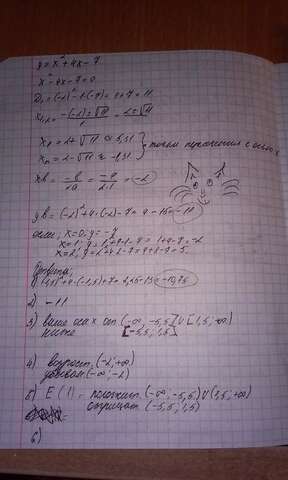 y = x² + 4x - 7
x² - 4x - 7 = 0
D₁ = (-2)² - 1·(-7) = 4 + 7 = 11
x₁,₂ = -(-2) ± √11 / 1 = 2 ± √11
x₁ = 2 + √11 ≈ 5,31
x₂ = 2 - √11 ≈ -1,31
точки пересечения с осью x
xв = -в/2a = -4/2·1 = -2
yв = (-2)² + 4·(-2) - 7 = 4 - 15 = -11
если, x=0; y=-7
x=1; y=1²+4·1-7 = 1+4-7 = -2
x=2; y=2²+4·2-7 = 4+8-7 = 5
Ответы:
1) (1,5)²+4·(-1,5)+7 = 2,25-13 = -10,75
2) -11
3) выше оси x от (-∞; -5,5] U [1,5; +∞)
ниже [-5,5; 1,5]
4) возраст. (-2; +∞)
убывает (-∞; -2)
5) E(f) - положит. (-∞; -5,5) U (1,5; +∞)
отрицат. (-5,5; 1,5)
6)